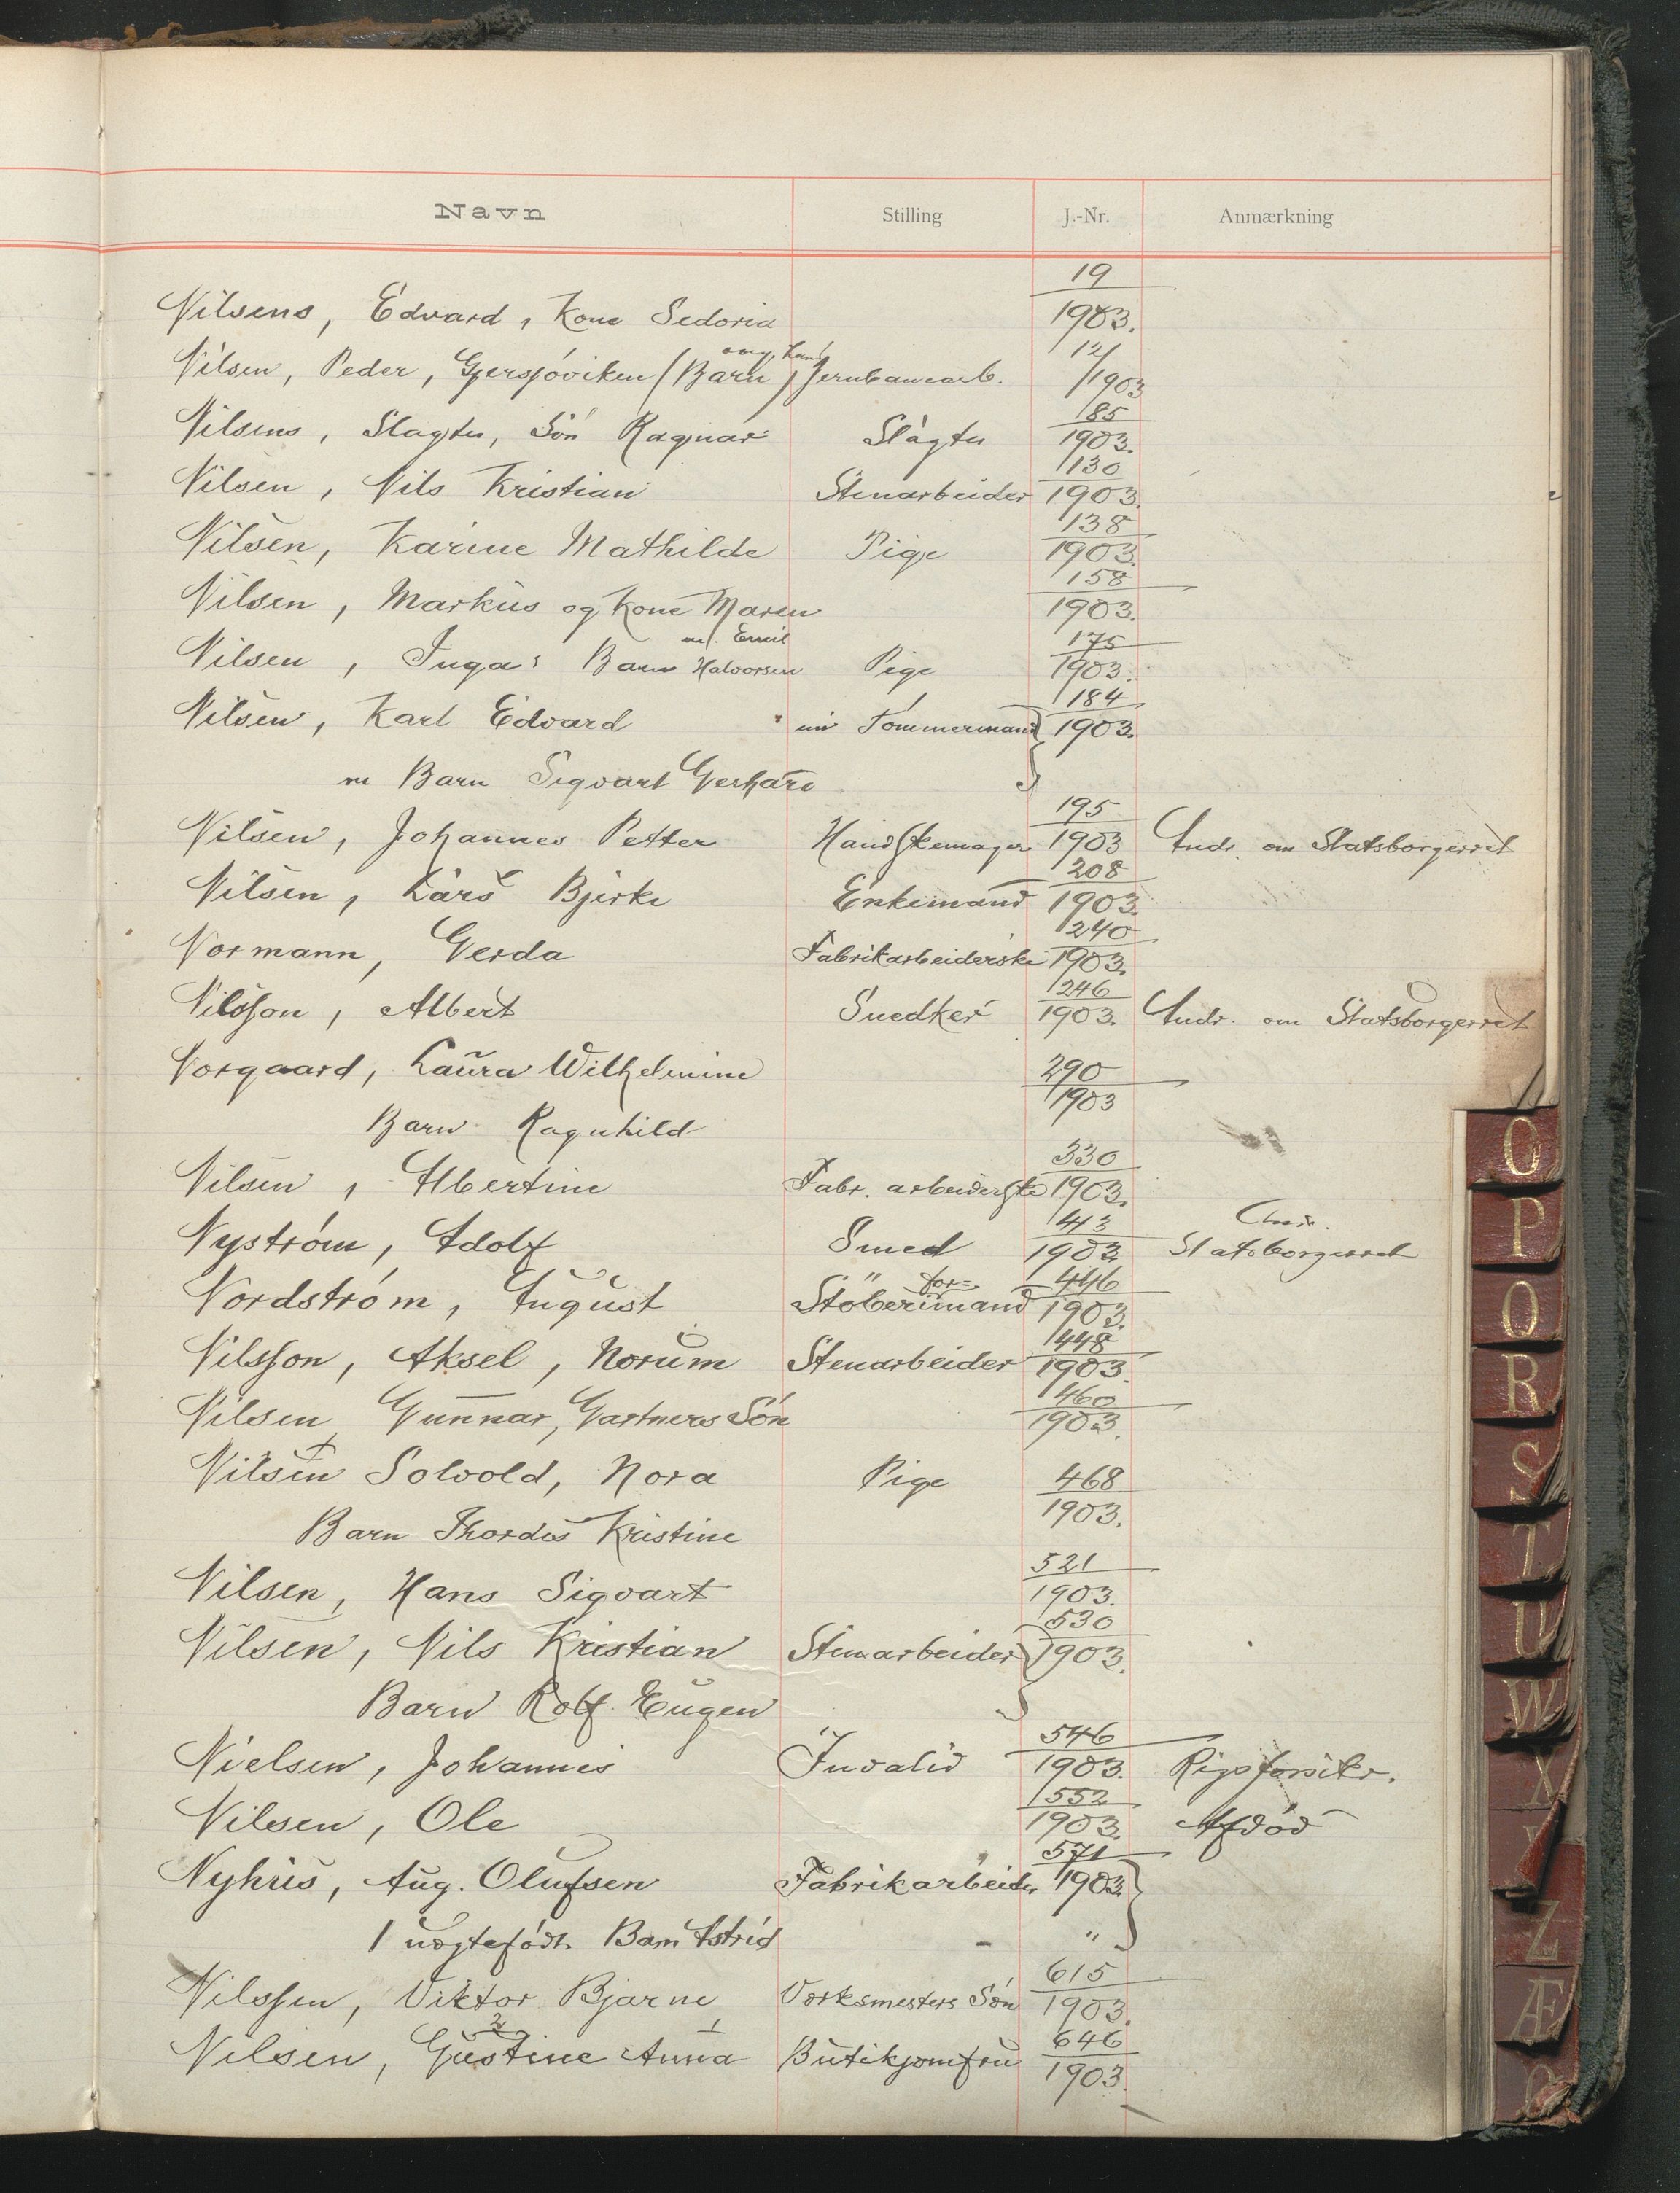 Navn Stilling J.-Nr. Anmærkning
Nilsens, Edvard, Kone Sedoria 19/1903.
Nilsen, Peder, Gjersjöviken (Barn) Jernbanearb. 12/1903
Nilsens, Slagter, Sön Ragnar Slagter 85/1903.
Nilsen, Nils Kristian Stenarbeider 130/1903.
Nilsen, Karine Mathilde Pige 138/1903.
Nilsen, Markus og Kone Maren 158/1903.
Nilsen, Inga's Barn m/. Emil Halvorsen Pige 175/1903.
Nilsen, Karl Edvard Tömmermand 184/1903.
m Barn Sigvart Gerhard
Nilsen, Johannes Petter Handskemager 195/1903 Andr. om Statsborgerret
Nilsen, Lars Bjerke Enkemand 208/1903.
Normann, Gerda Fabrikarbeiderske 240/1903.
Nilsson, Albert Snedker 246/1903. Andr. om Statsborgerret
Norgaard, Laura Wilhelmine 290/1903
Barn Ragnhild
Nilsen, Albertine Fabr. arbeiderske 330/1903.
Nyström, Adolf Smed 413/1903. Andr. Statsborgerret
Nordström, August Stöberiformand 446/1903.
Nilsson, Aksel, Norum Stenarbeider 448/1903.
Nilsen, Gunnar, Gartners Sön 460/1903.
Nilsen Solvold, Nora Pige 468/1903.
Barn Thordis Kristine
Nilsen, Hans Sigvart 521/1903.
Nilsen, Nils Kristian Stenarbeider 530/1903.
Barn Rolf Eugen
Nielsen, Johannes Invalid 546/1903. Rigsforsikr.
Nilsen, Ole 552/1903. Afdöd
Nyhus, Aug. Olufsen Fabrikarbeider 571/1903.
1 uægtefödt Barn Astrid - "
Nilssen, Viktor Bjarne Værksmesters Sön 615/1903.
Nilsen, Gustine Anna Butikjomfru 646/1903.
O
P
Q
R
S
T
U
W
X
Y
Z
Æ
Ø